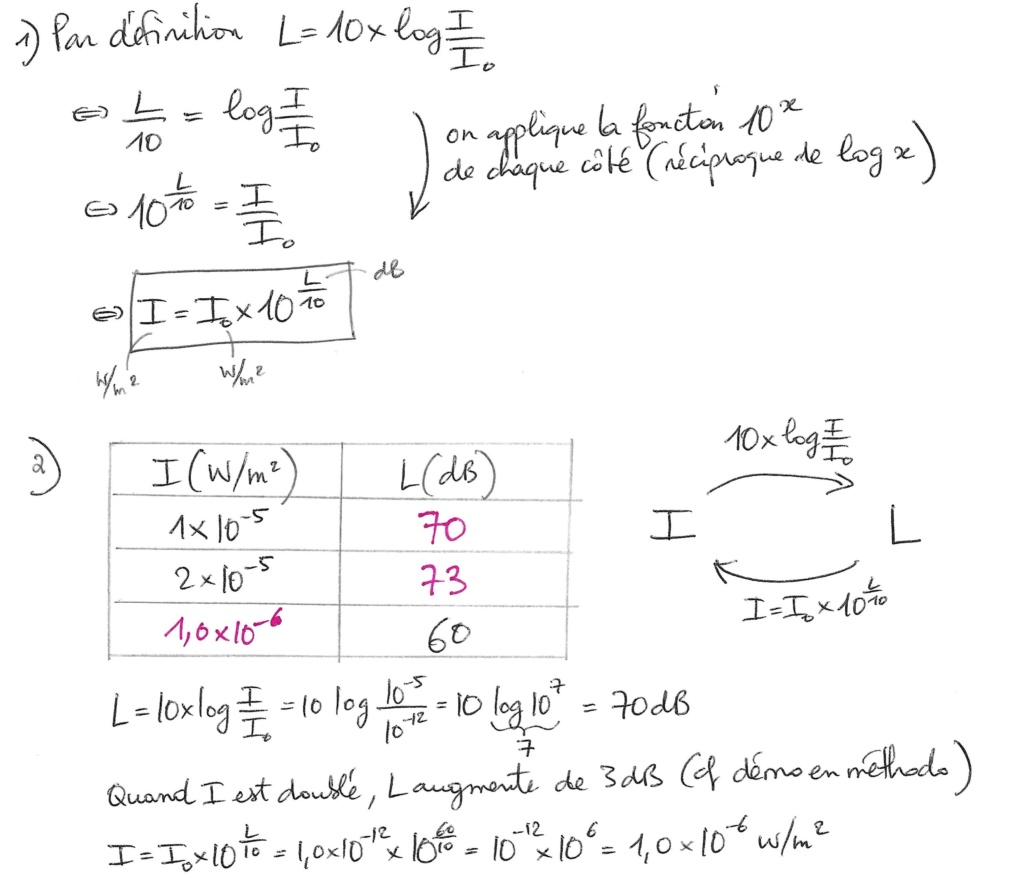 1) Par définition L = 10 × log I/I₀
⇔ L/10 = log I/I₀
on applique la fonction 10ˣ
de chaque côté (réciproque de log x)
⇔ 10^(L/10) = I/I₀
⇔ I = I₀ × 10^(L/10) dB
W/m² W/m²
2)
I (W/m²) L (dB)
1 × 10⁻⁵ 70
2 × 10⁻⁵ 73
1,0 × 10⁻⁶ 60
10 × log I/I₀
I L
I = I₀ × 10^(L/10)
L = 10 × log I/I₀ = 10 log 10⁻⁵/10⁻¹² = 10 log 10⁷ = 70 dB
7
Quand I est doublé, L augmente de 3 dB (cf démo en méthodo)
I = I₀ × 10^(L/10) = 1,0 × 10⁻¹² × 10^(60/10) = 10⁻¹² × 10⁶ = 1,0 × 10⁻⁶ W/m²